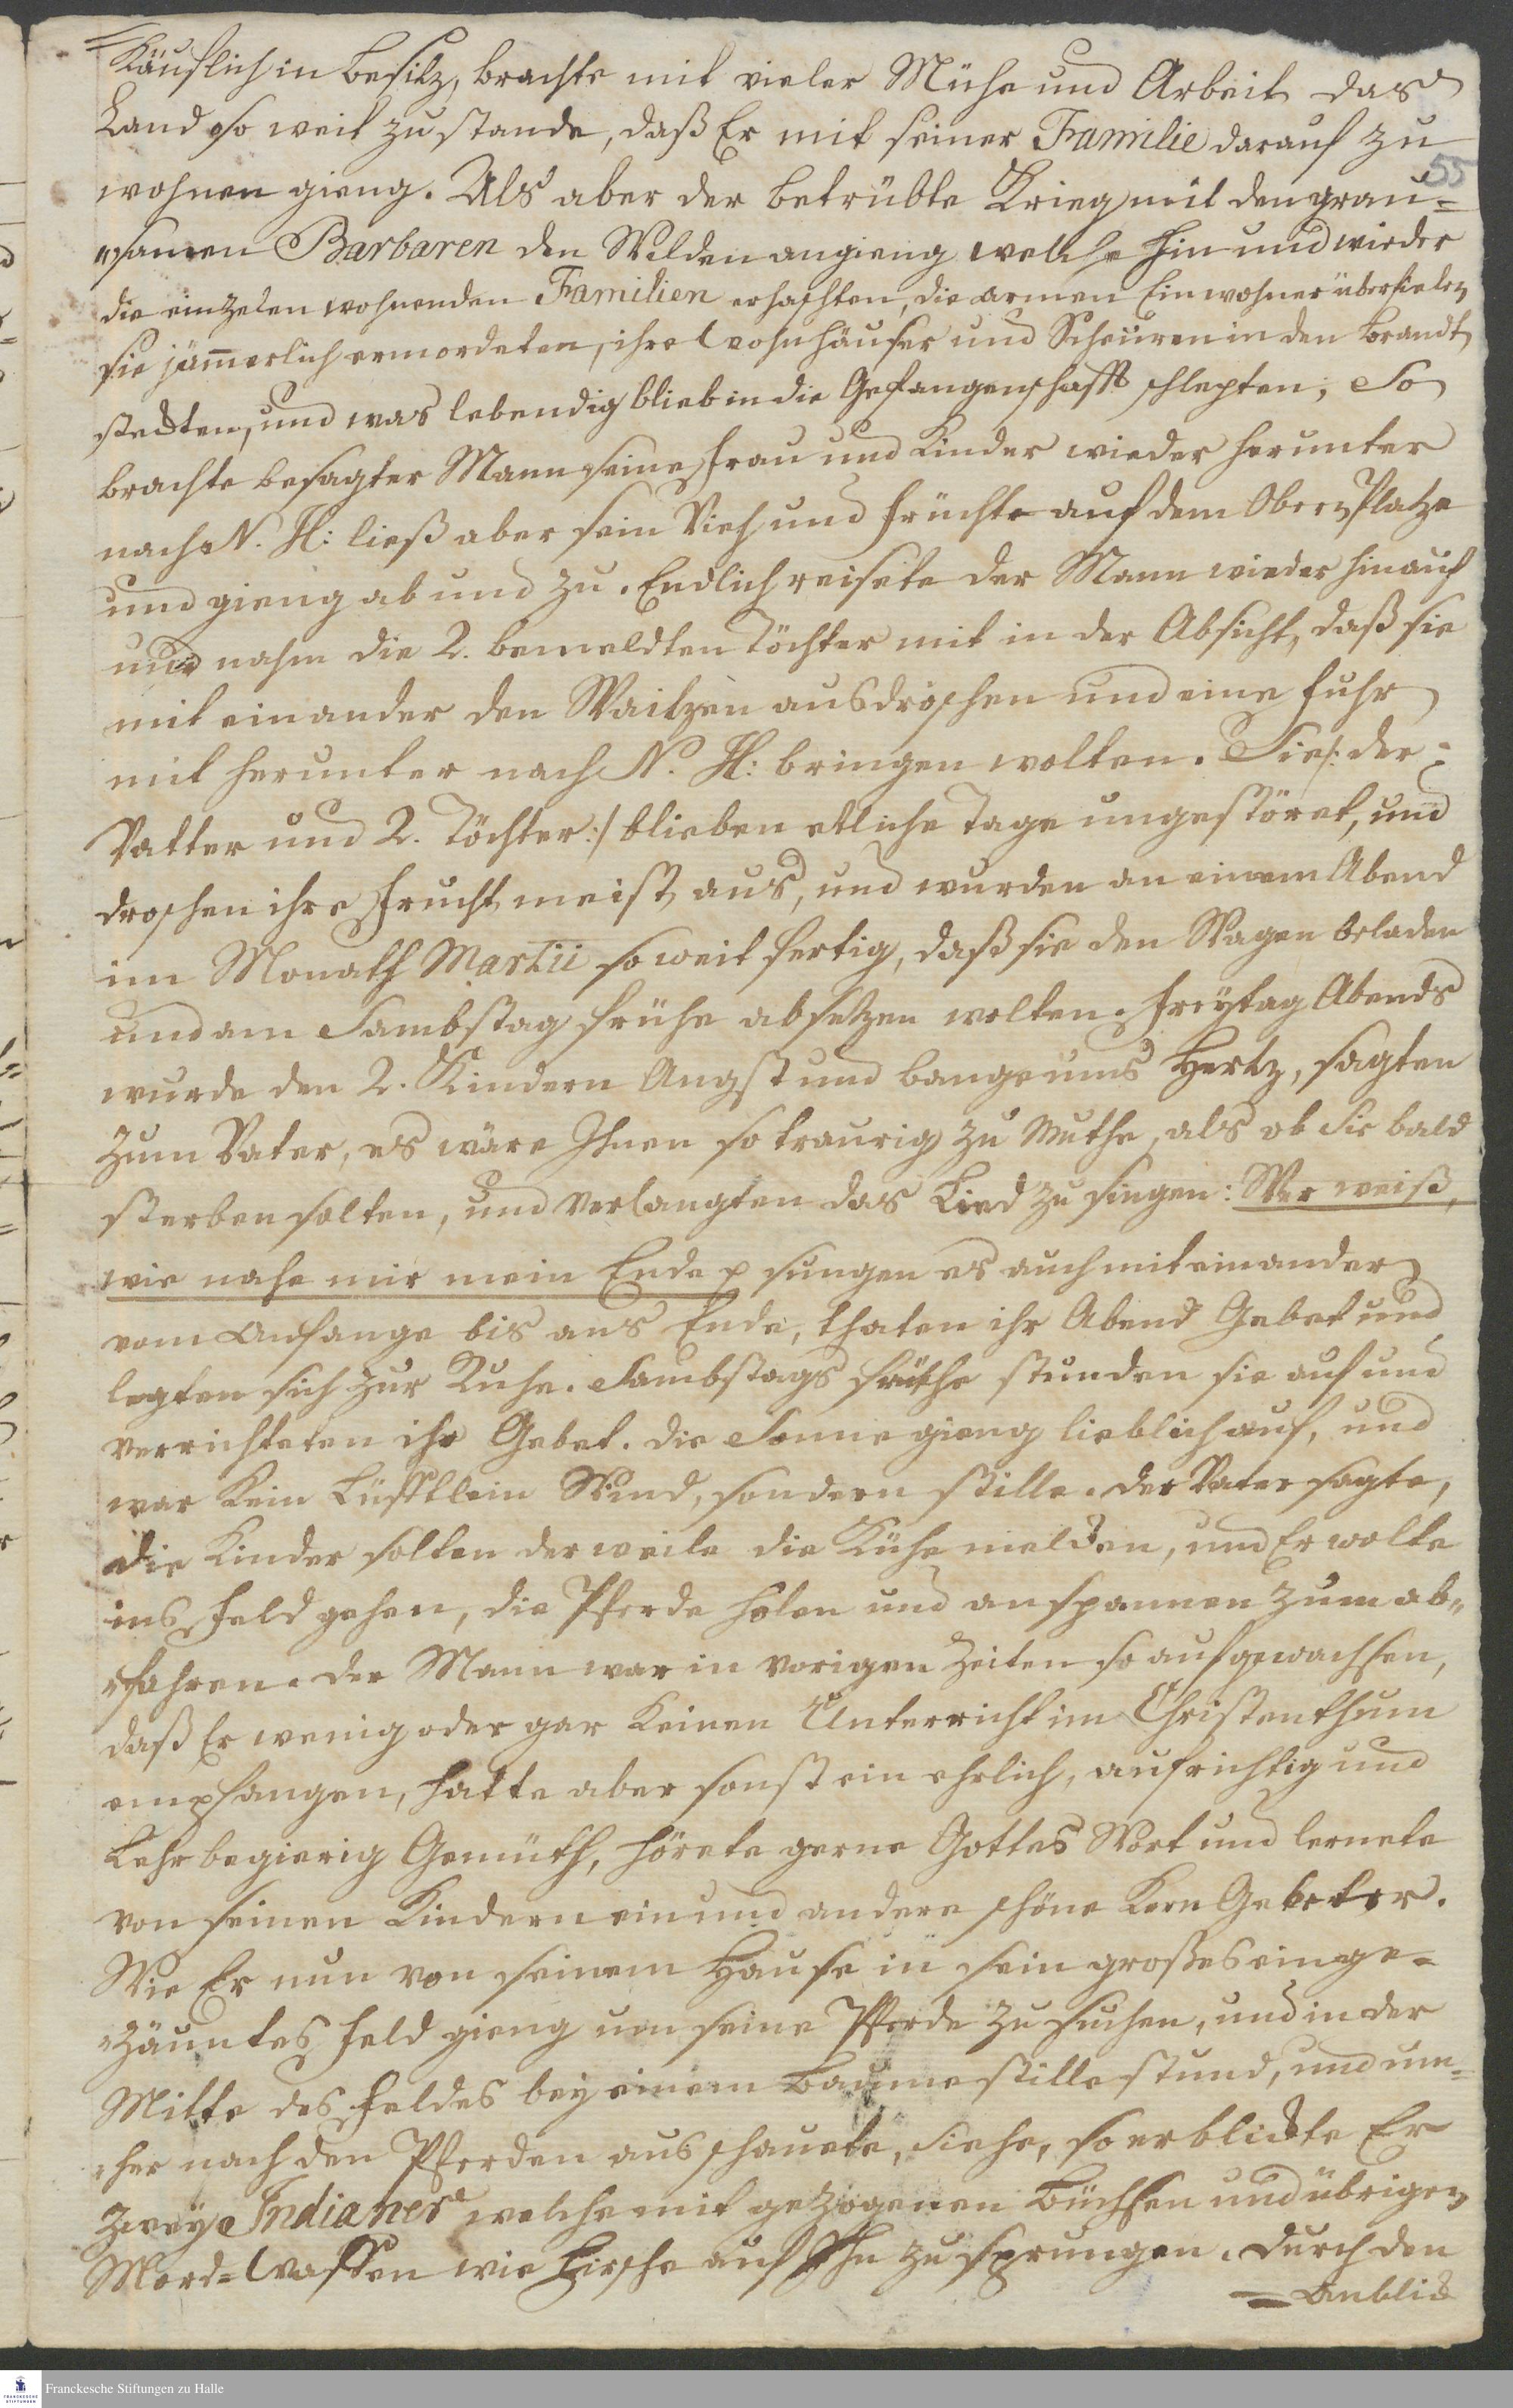 Käuflich in Besitz, brachte mit vieler Mühe und Arbeit das
Land so weit zustande, daß Er mit seiner Familie darauf zu
55
wohnen gieng. Als aber der betrübte Krieg mit den grau=
"samen Barbaren den Wilden angieng welche hin und wieder
die einzelen wohnenden Familien erhaschten, die armen Einwohner überfielen
sie jäm̄erlich ermordeten, ihre Wohnhäuser und Scheuren in den Brandt
steckten, und was lebendig blieb in die Gefangenschafft schlepten; So
brachte besagter Mann seine Frau und Kinder wieder herunter
nach N. H: ließ aber sein Vieh und Früchte auf dem Obern Platze
und gieng ab und zu. Endlich reisete der Mann wieder hinauf
und nahm die 2. bemeldten Töchter mit in der Absicht, daß sie
mit einander den Waitzen ausdröschen und eine Fuhr
mit herunter nach N. H: bringen wolten. Sie /: der
Vatter und 2. Töchter :/ blieben etliche Tage ungestöret, und
droschen ihre Frucht meist aus, und wurden an einem Abend
im Monath Martii so weit fertig, daß sie den Wagen beladen
und am Sambstag frühe absetzen wolten. Freytag Abends
wurde den 2. Kindern Angst und bange ums Hertz, sagten
zum Vater, es wäre Ihnen so traurig zu Muthe, als ob Sie bald
sterben solten, und verlangten das Lied zu singen: Wer weiß,
wie nahe mir mein Ende p sungen es auch miteinander
vom Anfange bis ans Ende, thaten ihr Abend Gebet und
legten sich zur Ruhe. Sambstags früthe stunden sie auf und
verrichteten ihr Gebet. die Sonne gieng lieblich auf, und
war Kein Lüfftlein Wind, sondern stille. der Vater sagte,
die Kinder solten derweile die Kühe melcken, und Er wolte
ins Feld gehen, die Pferde holen und anspannen zum ab"
"fahren. der Mann war in vorigen Zeiten so aufgewachsen,
daß Er wenig oder gar Keinen Unterricht im Christenthum
empfangen, hatte aber sonst ein ehrlich, aufrichtig und
Lehrbegierig Gemüth, hörete gerne Gottes Wort und lernete
von seinen Kindern ein und andere schöne Kern Gebeter.
Wie Er nun von seinem Hause in sein großes einge=
"zäuntes Feld gieng um seine Pferde zu suchen, und in der
Mitte des Feldes bey einem Baume stille stund, und um=
"her nach den Pferden ausschauete, siehe, so erblickte Er
Zwey Indianer welche mit gezogenen Büchsen und übrigen
Mord=Waffen wie Hirsche auf Ihn zu sprungen. Durch den
= Anblick
FRANCKESCHE STIFTUNGEN
Franckesche Stiftungen zu Halle